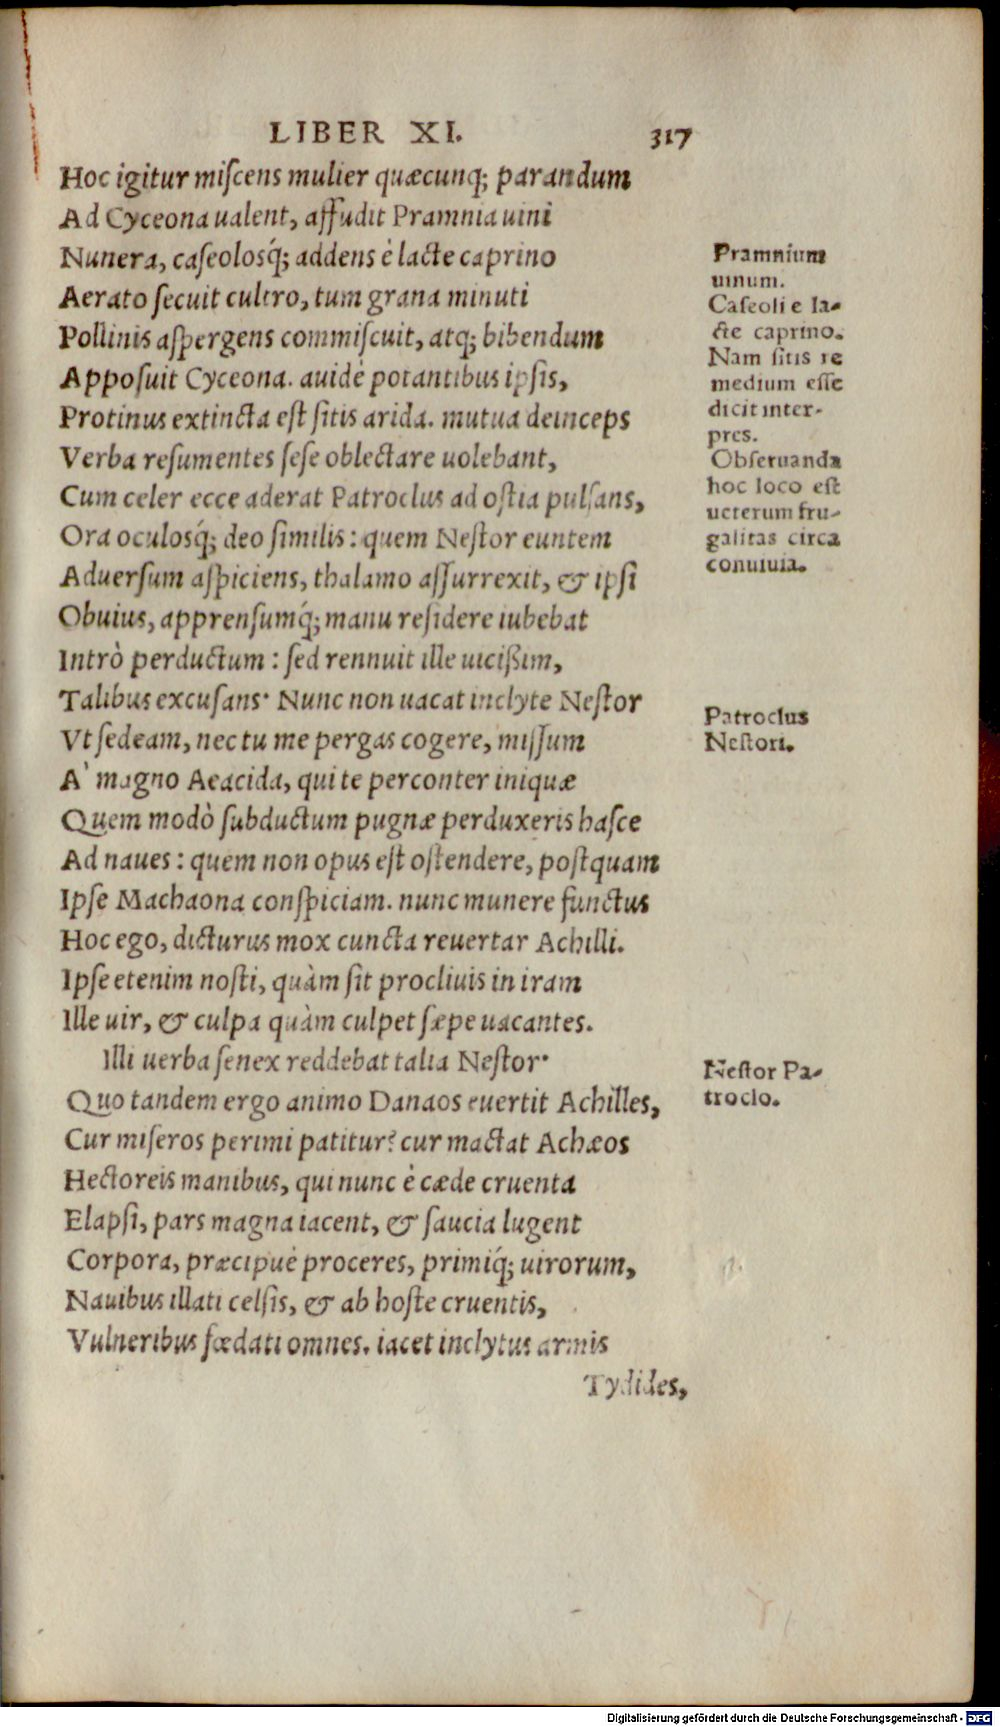 LIBER XI. 317
Hoc igitur miſcens mulier quæcunq; parandum
Ad Cyceona ualent, affudit Pramnia uini
Nunera, caſeolosq́; addens è lacte caprino
Aerato ſecuit cultro, tum grana minuti
Pollinis aſpergens commiſcuit, atq; bibendum
Appoſuit Cyceona. auidè potantibus ipſis,
Protinus extincta eſt ſitis arida. mutua deinceps
Verba reſumentes ſeſe oblectare uolebant,
Cum celer ecce aderat Patroclus ad oſtia pulſans,
Ora oculosq́; deo ſimilis: quem Neſtor euntem
Aduerſum aſpiciens, thalamo aſſurrexit, & ipſi
Obuius, apprenſumq́; manu reſidere iubebat
Intrò perductum: ſed rennuit ille uicißim,
Talibus excuſans· Nunc non uacat inclyte Neſtor
Vt ſedeam, nec tu me pergas cogere, miſſum
A` magno Aeacida, qui te perconter iniquæ
Quem modò ſubductum pugnæ perduxeris haſce
Ad naues: quem non opus eſt oſtendere, poſtquam
Ipſe Machaona conſpiciam. nunc munere functus
Hoc ego, dicturus mox cuncta reuertar Achilli.
Ipſe etenim noſti, quàm ſit procliuis in iram
Ille uir, & culpa quàm culpet ſæpe uacantes.
Illi uerba ſenex reddebat talia Neſtor·
Quo tandem ergo animo Danaos euertit Achilles,
Cur miſeros perimi patitur? cur mactat Achæos
Hectoreis manibus, qui nunc è cæde cruenta
Elapſi, pars magna iacent, & ſaucia lugent
Corpora, præcipuè proceres, primiq́; uirorum,
Nauibus illati celſis, & ab hoſte cruentis,
Vulneribus fœdati omnes. iacet inclytus armis
Tydides,
Pramnium
uinum.
Caſeoli e la-
cte caprino.
Nam ſitis re
medium eſſe
dicit inter-
pres.
Obſeruanda
hoc loco eſt
ueterum fru-
galitas circa
conuiuia.
Patroclus
Neſtori.
Neſtor Pa-
troclo.
Digitalisierung gefördert durch die Deutsche Forschungsgemeinschaft - DFG